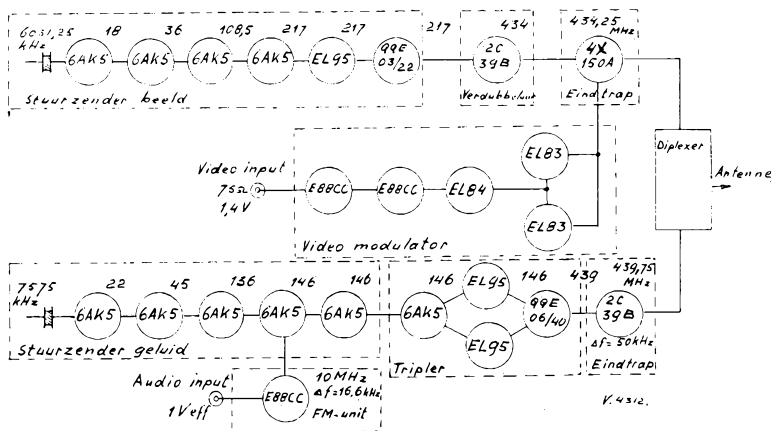 6031,25
kHz
18
36
108,5
217
217
217
434
434,25
MHz
6AK5
6AK5
6AK5
6AK5
EL95
QQE
03/22
2C
39B
4X
150A
Stuurzender beeld
Verdubbelaar
Eindtrap
Diplexer
Antenne
Video input
75Ω
1,4 V
E88CC
E88CC
EL84
EL83
EL83
Video modulator
7575
kHz
22
45
136
146
146
146
146
439
439,75
MHz
6AK5
6AK5
6AK5
6AK5
6AK5
6AK5
EL95
EL95
QQE
06/40
2C
39B
Δf= 50kHz
Stuurzender geluid
Tripler
Eindtrap
Audio input
1 Veff
E88CC
10MHz
Δf=16,6kHz
FM-unit
V. 4312.